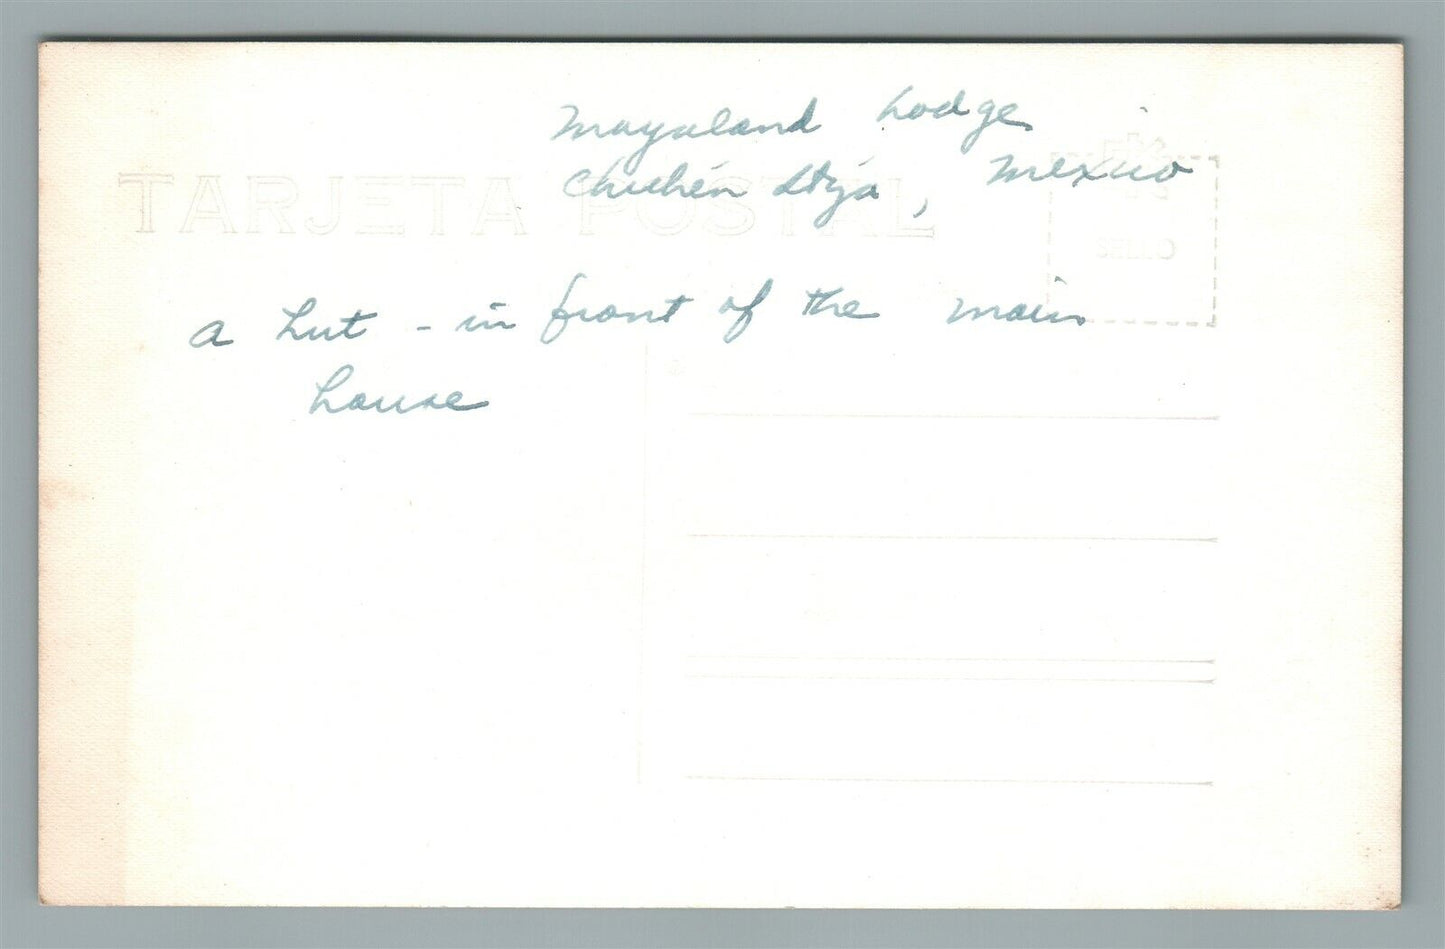 Mayaland Lodge
Chichén Itza, Mexico
TARJETA POSTAL
a hut - in front of the main
house